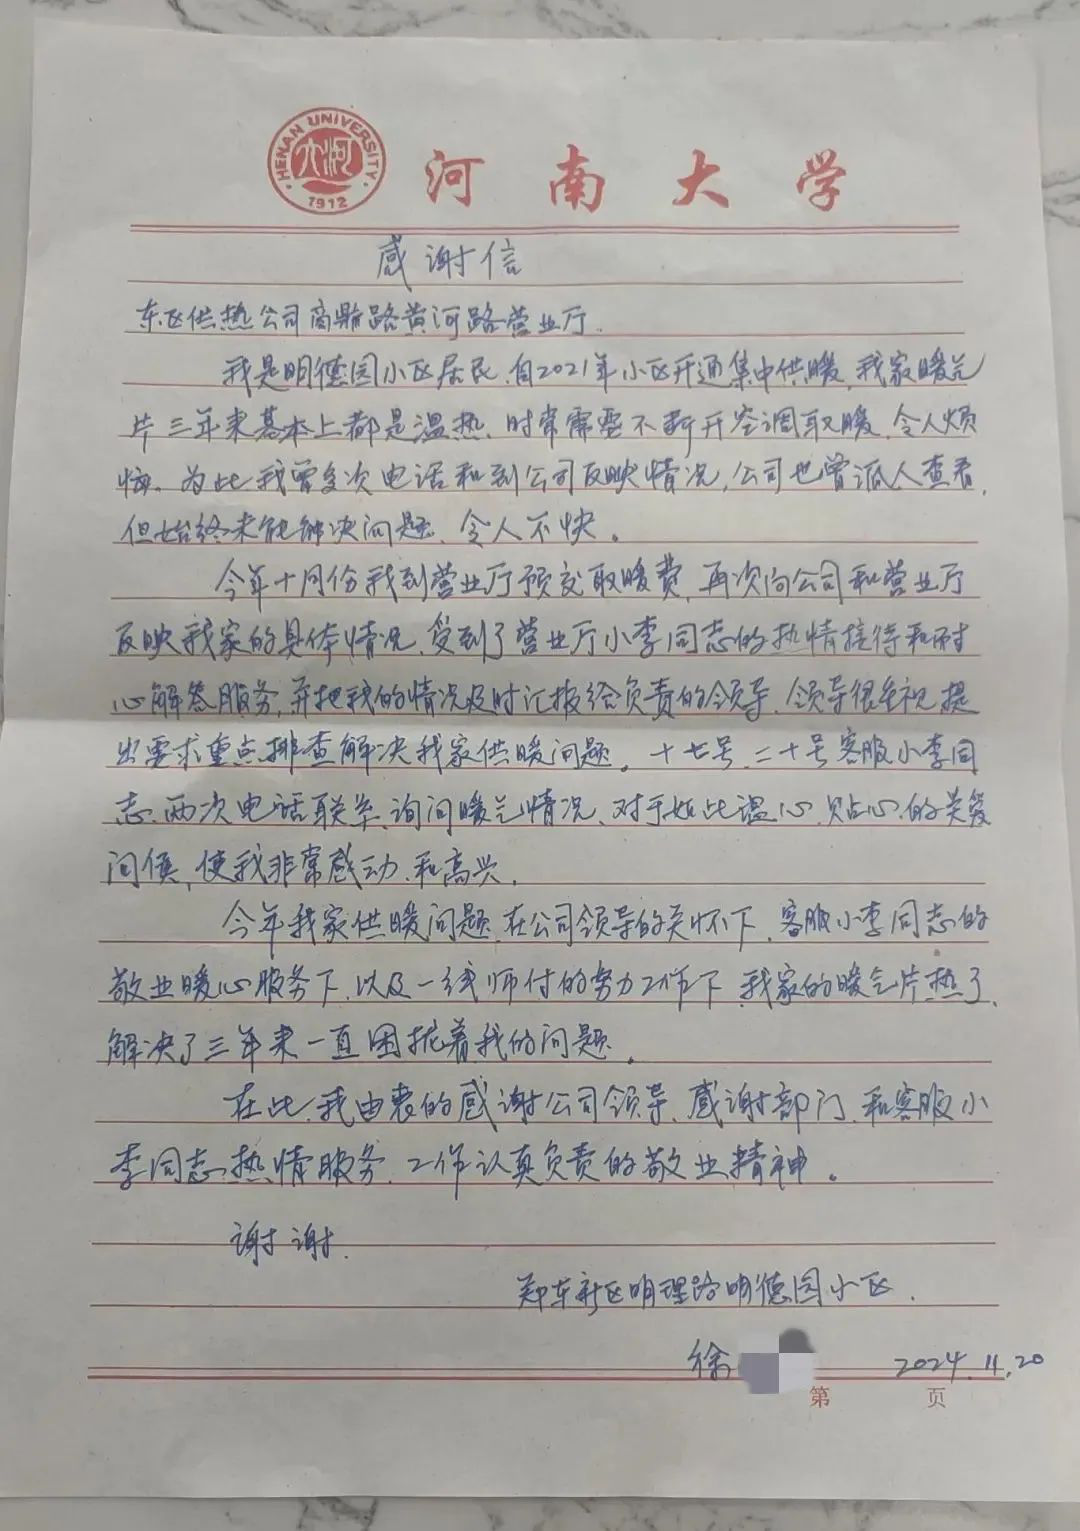 HENAN UNIVERSITY
大河
1912
河南大学
感谢信
东区供热公司商鼎路黄河路营业厅.
我是明德园小区居民,自2021年小区开通集中供暖,我家暖气
片三年来基本上都是温热、时常需要不断开空调取暖,令人烦
恼。为此我曾多次电话和到公司反映情况,公司也曾派人查看,
但始终未能解决问题、令人不快。
今年十月份我到营业厅预交取暖费,再次向公司和营业厅
反映我家的具体情况,受到了营业厅小李同志的热情接待和耐
心解答服务,并把我的情况及时汇报给负责的领导,领导很重视,提
出要求重点排查解决我家供暖问题。十七号、二十号客服小李同
志、两次电话联系、询问暖气情况、对于如此温心、贴心、的关爱
问候,使我非常感动、和高兴,
今年我家供暖问题,在公司领导的关怀下、客服小李同志的
敬业暖心服务下、以及一线师付的努力工作下,我家的暖气片热了,
解决了三年来一直困扰着我的问题。
在此、我由衷的感谢公司领导、感谢部门、和客服小
李同志热情服务、工作认真负责的敬业精神。
谢谢.
郑东新区明理路明德园小区.
徐 2024.11.20
第 页